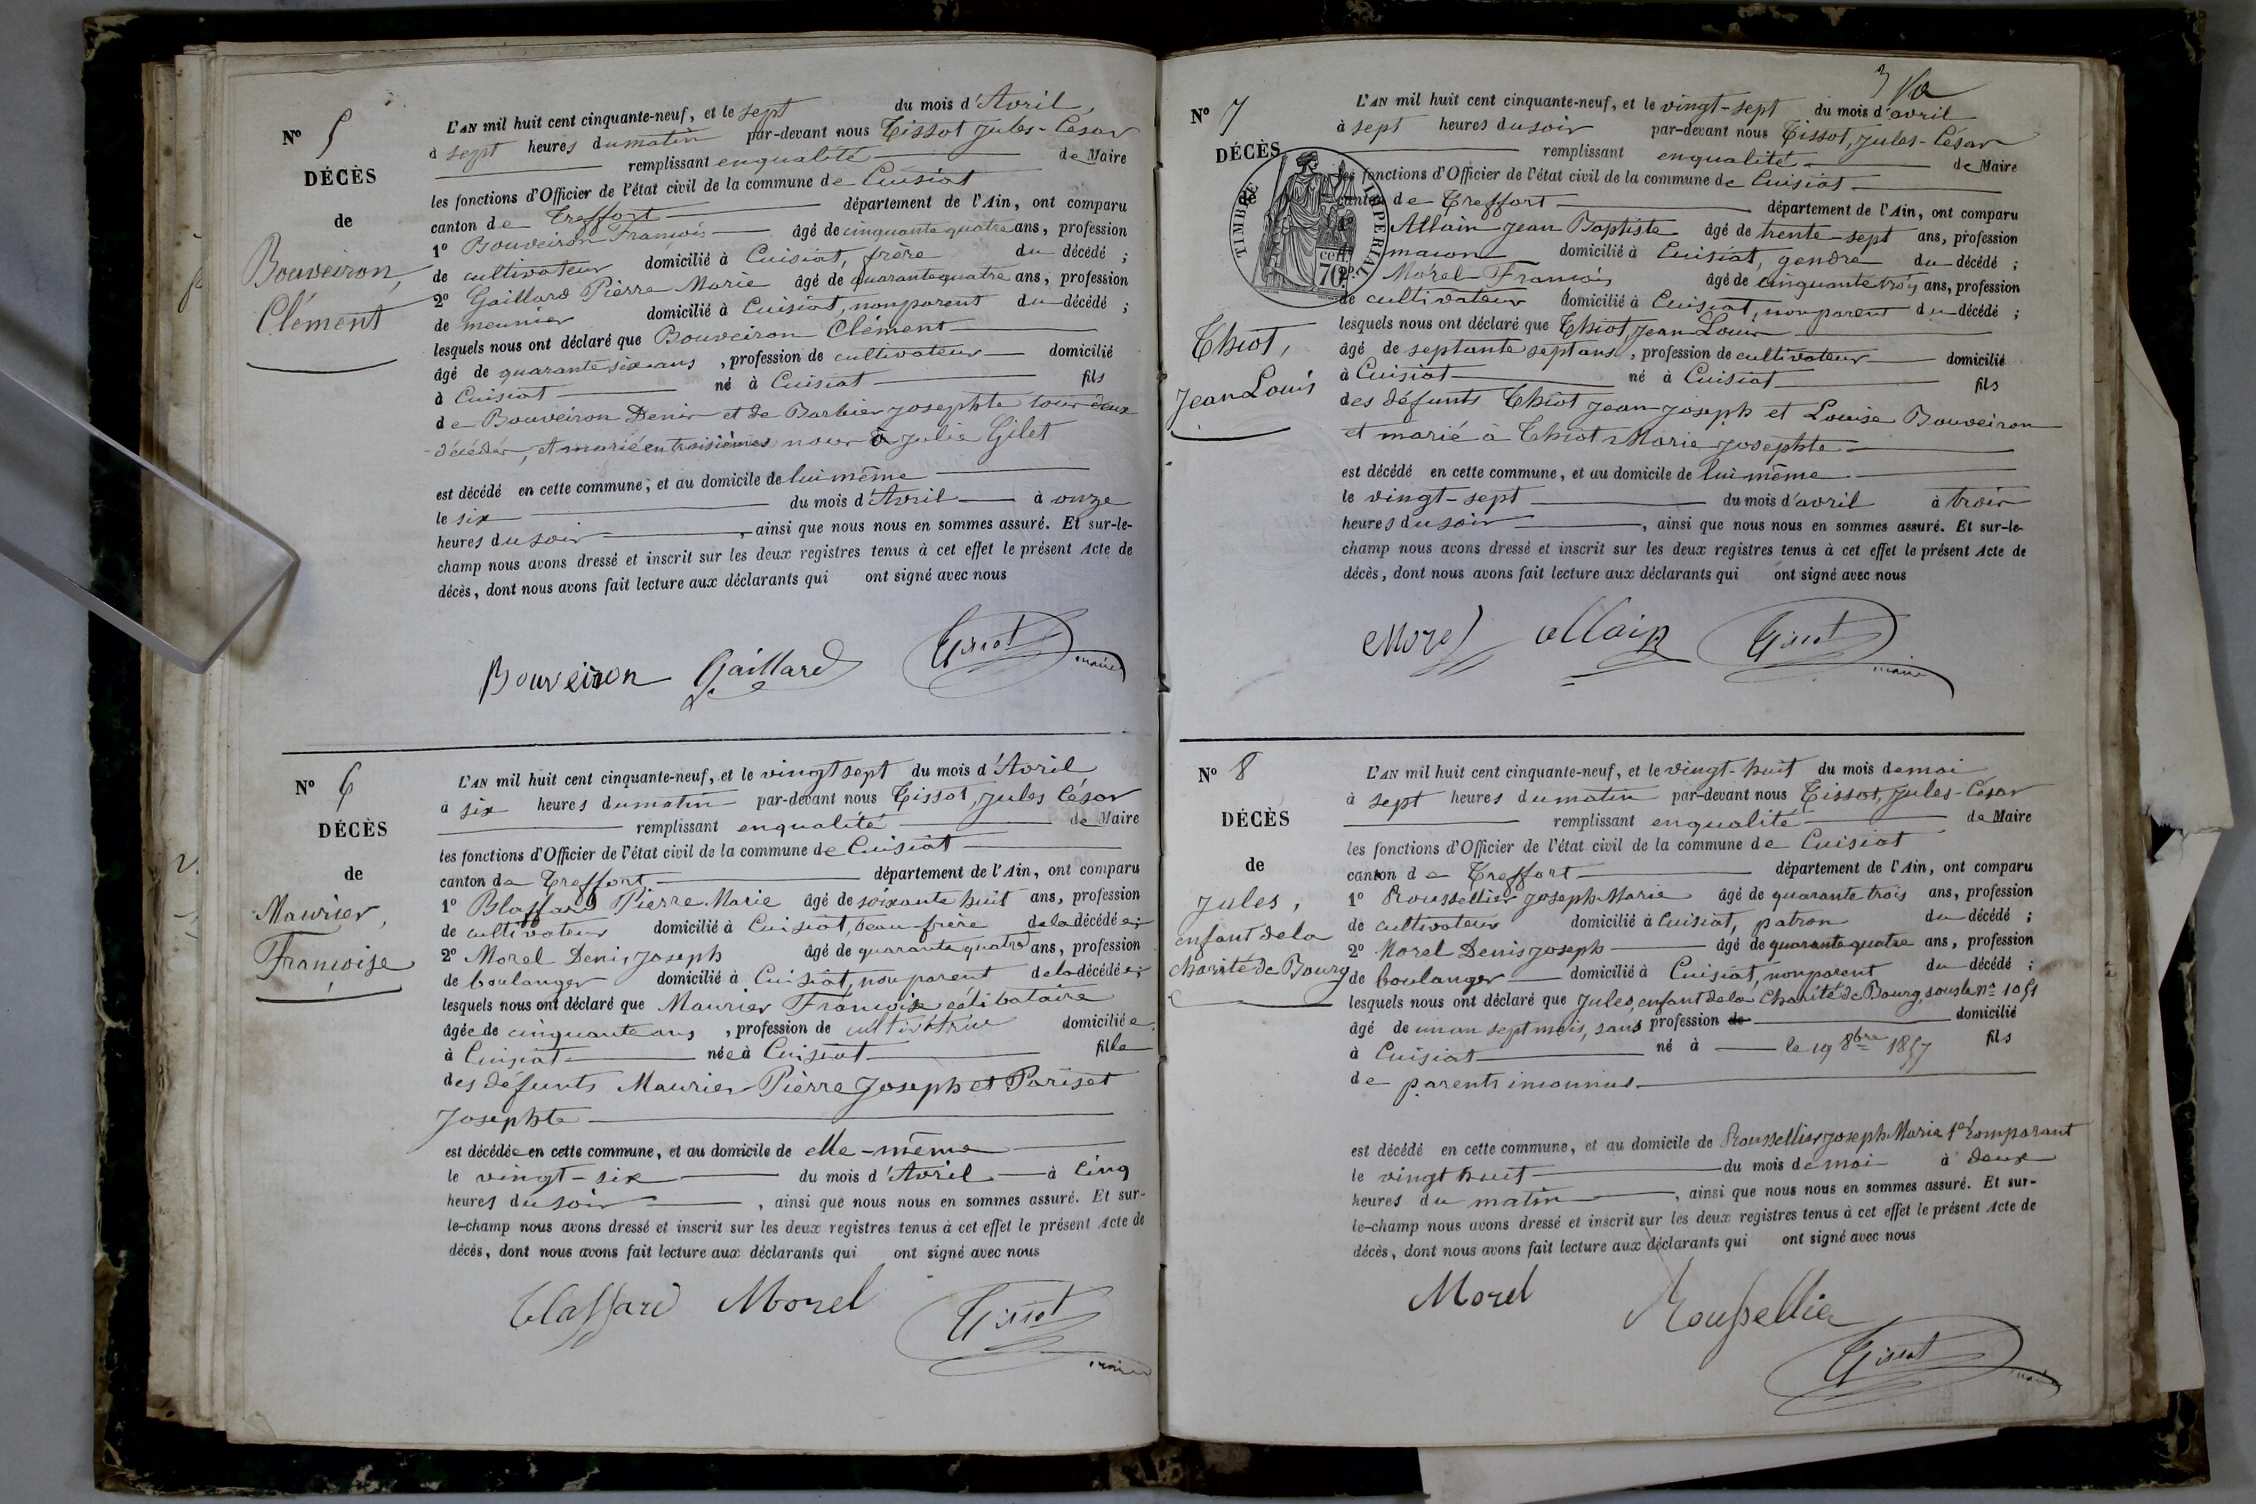 N° 5
DÉCÈS
de
Bouveiron,
Clément
L'AN mil huit cent cinquante-neuf, et le sept du mois d'Avril,
à sept heures du matin par-devant nous Tissot Jules-César
remplissant en qualité de Maire
les fonctions d'Officier de l'état civil de la commune de Cuisiat
canton de Treffort département de l'Ain, ont comparu
1° Bouveiron François âgé de cinquante quatre ans, profession
de cultivateur domicilié à Cuisiat, frère du décédé ;
2° Gaillard Pierre Marie âgé de quarante quatre ans, profession
de meunier domicilié à Cuisiat, non parent du décédé ;
lesquels nous ont déclaré que Bouveiron Clément
âgé de quarante six ans, profession de cultivateur domicilié
à Cuisiat né à Cuisiat fils
de Bouveiron Denis et de Barbier Josephte tous deux
décédés, et marié en troisièmes noces à Julie Gilet
est décédé en cette commune, et au domicile de lui même
le six du mois d'Avril à onze
heures du soir, ainsi que nous nous en sommes assuré. Et sur-le-
champ nous avons dressé et inscrit sur les deux registres tenus à cet effet le présent Acte de
décès, dont nous avons fait lecture aux déclarants qui ont signé avec nous
Bouveiron Gaillard Tissot
maire
N° 6
DÉCÈS
de
Maurier,
Françoise
L'AN mil huit cent cinquante-neuf, et le vingt sept du mois d'Avril
à six heures du matin par-devant nous Tissot, Jules César
remplissant en qualité de Maire
les fonctions d'Officier de l'état civil de la commune de Cuisiat
canton de Treffort département de l'Ain, ont comparu
1° Blaffard Pierre Marie âgé de soixante huit ans, profession
de cultivateur domicilié à Cuisiat, beau-frère de la décédée ;
2° Morel Denis Joseph âgé de quarante quatre ans, profession
de boulanger domicilié à Cuisiat, non parent de la décédée ;
lesquels nous ont déclaré que Maurier Françoise célibataire
âgée de cinquante ans, profession de cultivatrice domiciliée
à Cuisiat née à Cuisiat fille
des défunts Maurier Pierre Joseph et Pariset
Josephte
est décédée en cette commune, et au domicile de elle-même
le vingt-six du mois d'Avril à cinq
heures du soir, ainsi que nous nous en sommes assuré. Et sur-
le-champ nous avons dressé et inscrit sur les deux registres tenus à cet effet le présent Acte de
décès, dont nous avons fait lecture aux déclarants qui ont signé avec nous
Blaffard Morel Tissot
maire
3
N° 7
DÉCÈS
de
TIMBRE IMPERIAL
70 cent.
Thiot,
Jean Louis
L'AN mil huit cent cinquante-neuf, et le vingt-sept du mois d'avril
à sept heures du soir par-devant nous Tissot, Jules-César
remplissant en qualité de Maire
les fonctions d'Officier de l'état civil de la commune de Cuisiat
canton de Treffort département de l'Ain, ont comparu
1° Allain Jean Baptiste âgé de trente-sept ans, profession
de maçon domicilié à Cuisiat, gendre du décédé ;
2° Morel François âgé de cinquante trois ans, profession
de cultivateur domicilié à Cuisiat, non parent du décédé ;
lesquels nous ont déclaré que Thiot, Jean Louis
âgé de septante sept ans, profession de cultivateur domicilié
à Cuisiat né à Cuisiat fils
des défunts Thiot Jean-Joseph et Louise Bouveiron
et marié à Thiot Marie Josephte
est décédé en cette commune, et au domicile de lui même
le vingt-sept du mois d'avril à trois
heures du soir, ainsi que nous nous en sommes assuré. Et sur-le-
champ nous avons dressé et inscrit sur les deux registres tenus à cet effet le présent Acte de
décès, dont nous avons fait lecture aux déclarants qui ont signé avec nous
Morel Allain Tissot
maire
N° 8
DÉCÈS
de
Jules,
enfant de la
charité de Bourg
L'AN mil huit cent cinquante-neuf, et le vingt-huit du mois de mai
à sept heures du matin par-devant nous Tissot, Jules-César
remplissant en qualité de Maire
les fonctions d'Officier de l'état civil de la commune de Cuisiat
canton de Treffort département de l'Ain, ont comparu
1° Roussellier Joseph Marie âgé de quarante trois ans, profession
de cultivateur domicilié à Cuisiat, patron du décédé ;
2° Morel Denis Joseph âgé de quarante quatre ans, profession
de boulanger domicilié à Cuisiat, non parent du décédé ;
lesquels nous ont déclaré que Jules, enfant de la Charité de Bourg, sous le n° 1051
âgé de un an sept mois, sans profession de domicilié
à Cuisiat né à le 19 8bre 1857 fils
de parents inconnus
est décédé en cette commune, et au domicile de Roussellier Joseph Marie 1er comparant
le vingt huit du mois de mai à deux
heures du matin, ainsi que nous nous en sommes assuré. Et sur-
le-champ nous avons dressé et inscrit sur les deux registres tenus à cet effet le présent Acte de
décès, dont nous avons fait lecture aux déclarants qui ont signé avec nous
Morel Roussellier
Tissot
maire